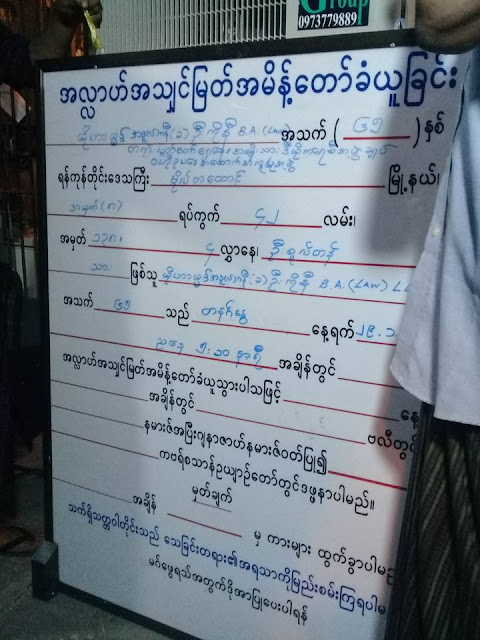 Group
0973779889
အလ္လာဟ်အသျှင်မြတ်အမိန့်တော်ခံယူခြင်း
မိုဟာမ္မဒ် (ခ) ဦးကိုနီ B.A. (LAW) အသက် ( ၆၅ ) နှစ်
ရန်ကုန်တိုင်းဒေသကြီး ဗိုလ်တထောင် မြို့နယ်၊
အမှတ် (၈) ရပ်ကွက် ၄၂ လမ်း၊
အမှတ် ၄ လွှာနေ၊ ဦး
သား ဖြစ်သူ (ခ) ဦးကိုနီ B.A. (LAW)
အသက် ၆၅ သည် တနင်္ဂနွေ နေ့ရက် ၂၉.၁
ညနေ ၅:၁၀ နာရီ အချိန်တွင်
အလ္လာဟ်အသျှင်မြတ်အမိန့်တော်ခံယူသွားပါသဖြင့်
အချိန်တွင် ဗလီတွင်
နမားဇ်အပြီးဂျနာဇာဟ်နမားဇ်ဝတ်ပြု၍
ကဗရ်စသာန်ဥယျာဉ်တော်တွင်ဒဖ္ဖနာပါမည်။
မှတ်ချက်
အချိန် မှ ကားများ ထွက်ခွာပါမည်
သက်ရှိသတ္တဝါတိုင်းသည် သေခြင်းတရား၏အရသာကိုမြည်းစမ်းကြရပါမ
မဂ်ဖွေရသ်အတွက်ဒိုအာပြုပေးပါရန်